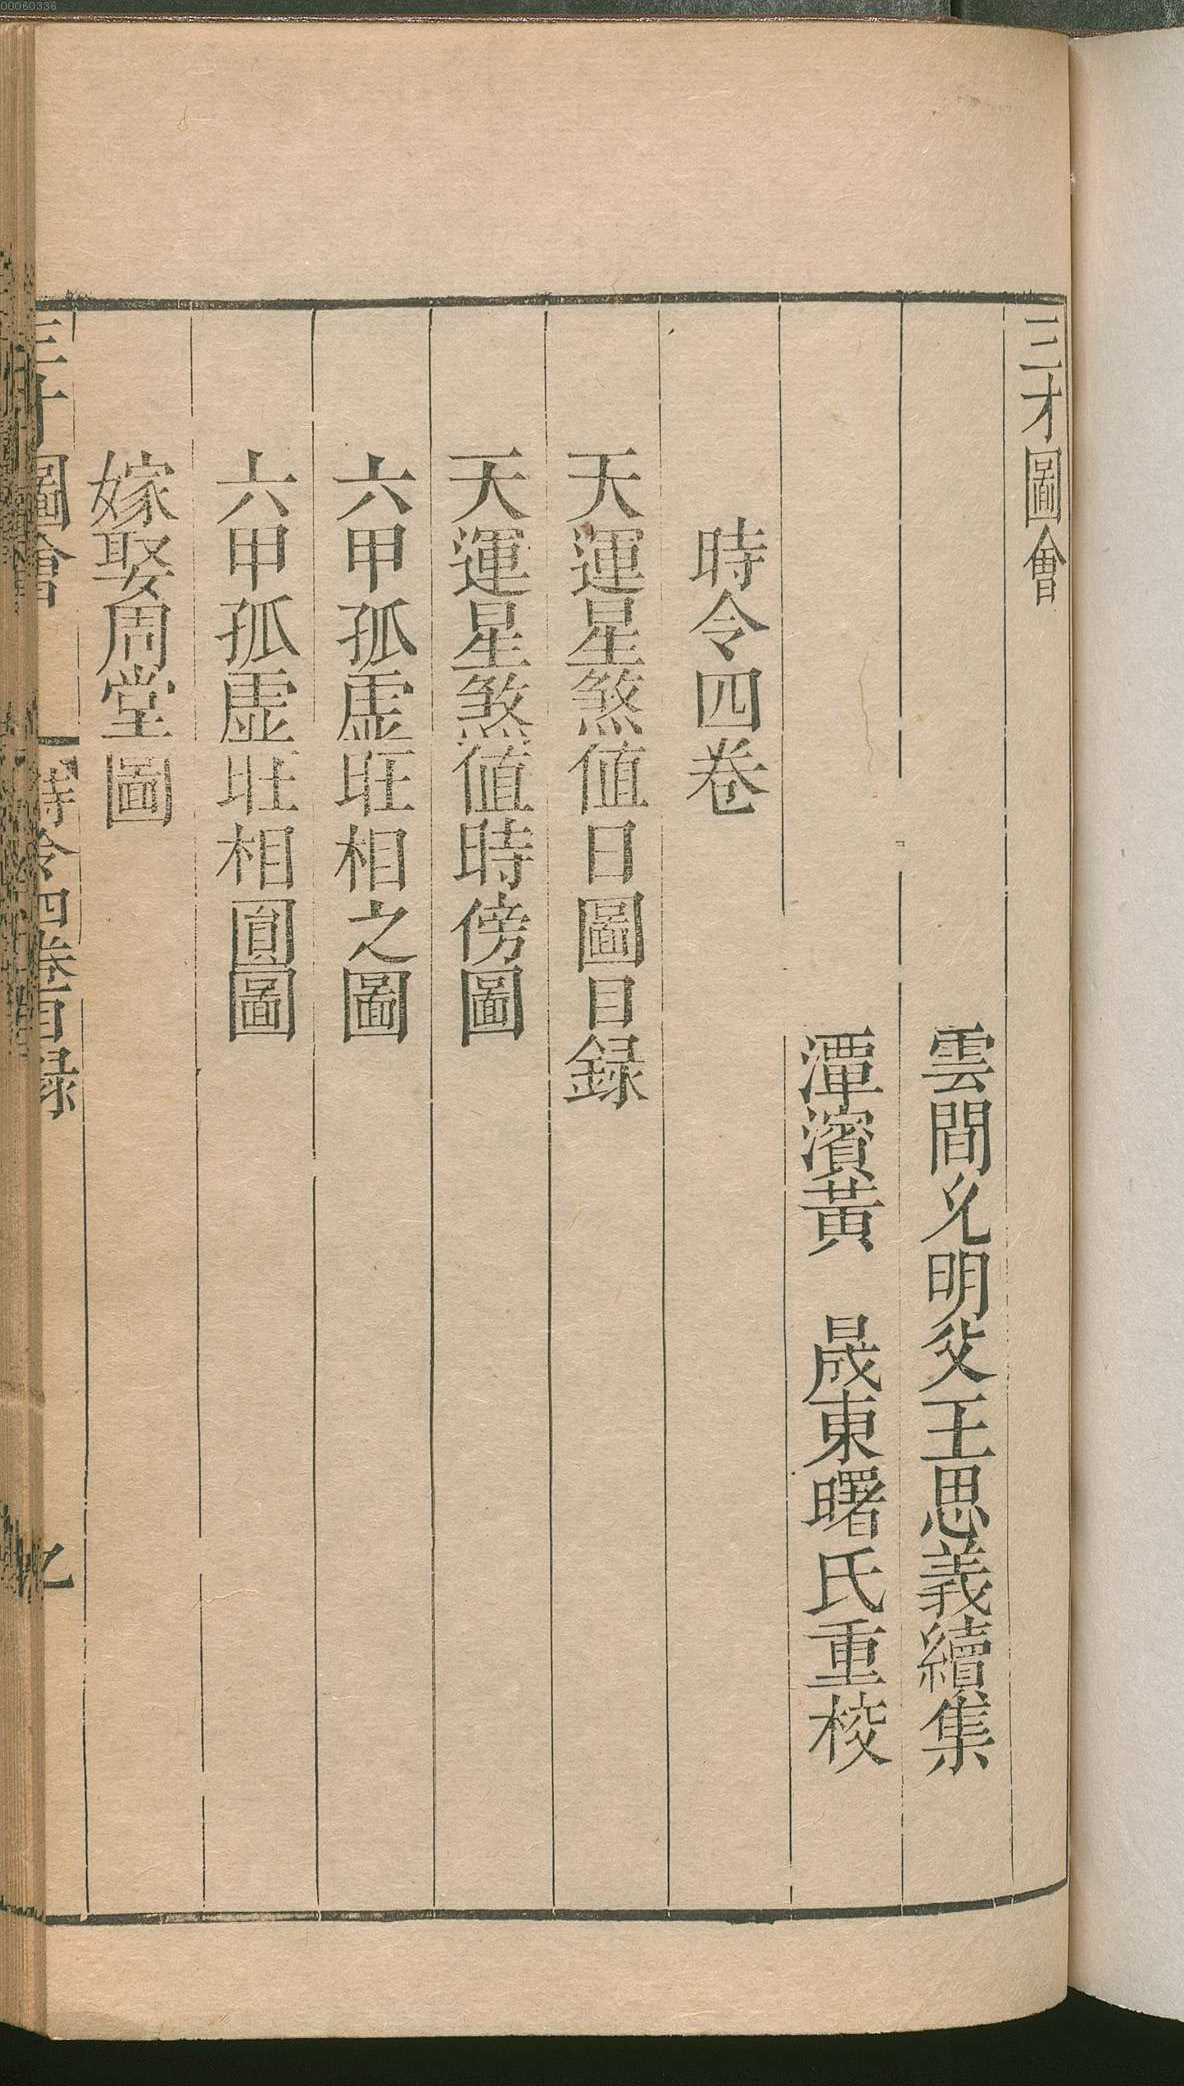 00060336
三才圖會
雲間允明父王思義續集
潭濱黃　晟東曙氏重校
時令四卷
天運星煞值日圖目録
天運星煞值時傍圖
六甲孤虛旺相之圖
六甲孤虛旺相圓圖
嫁娶周堂圖
三才圖會　時令四卷目録